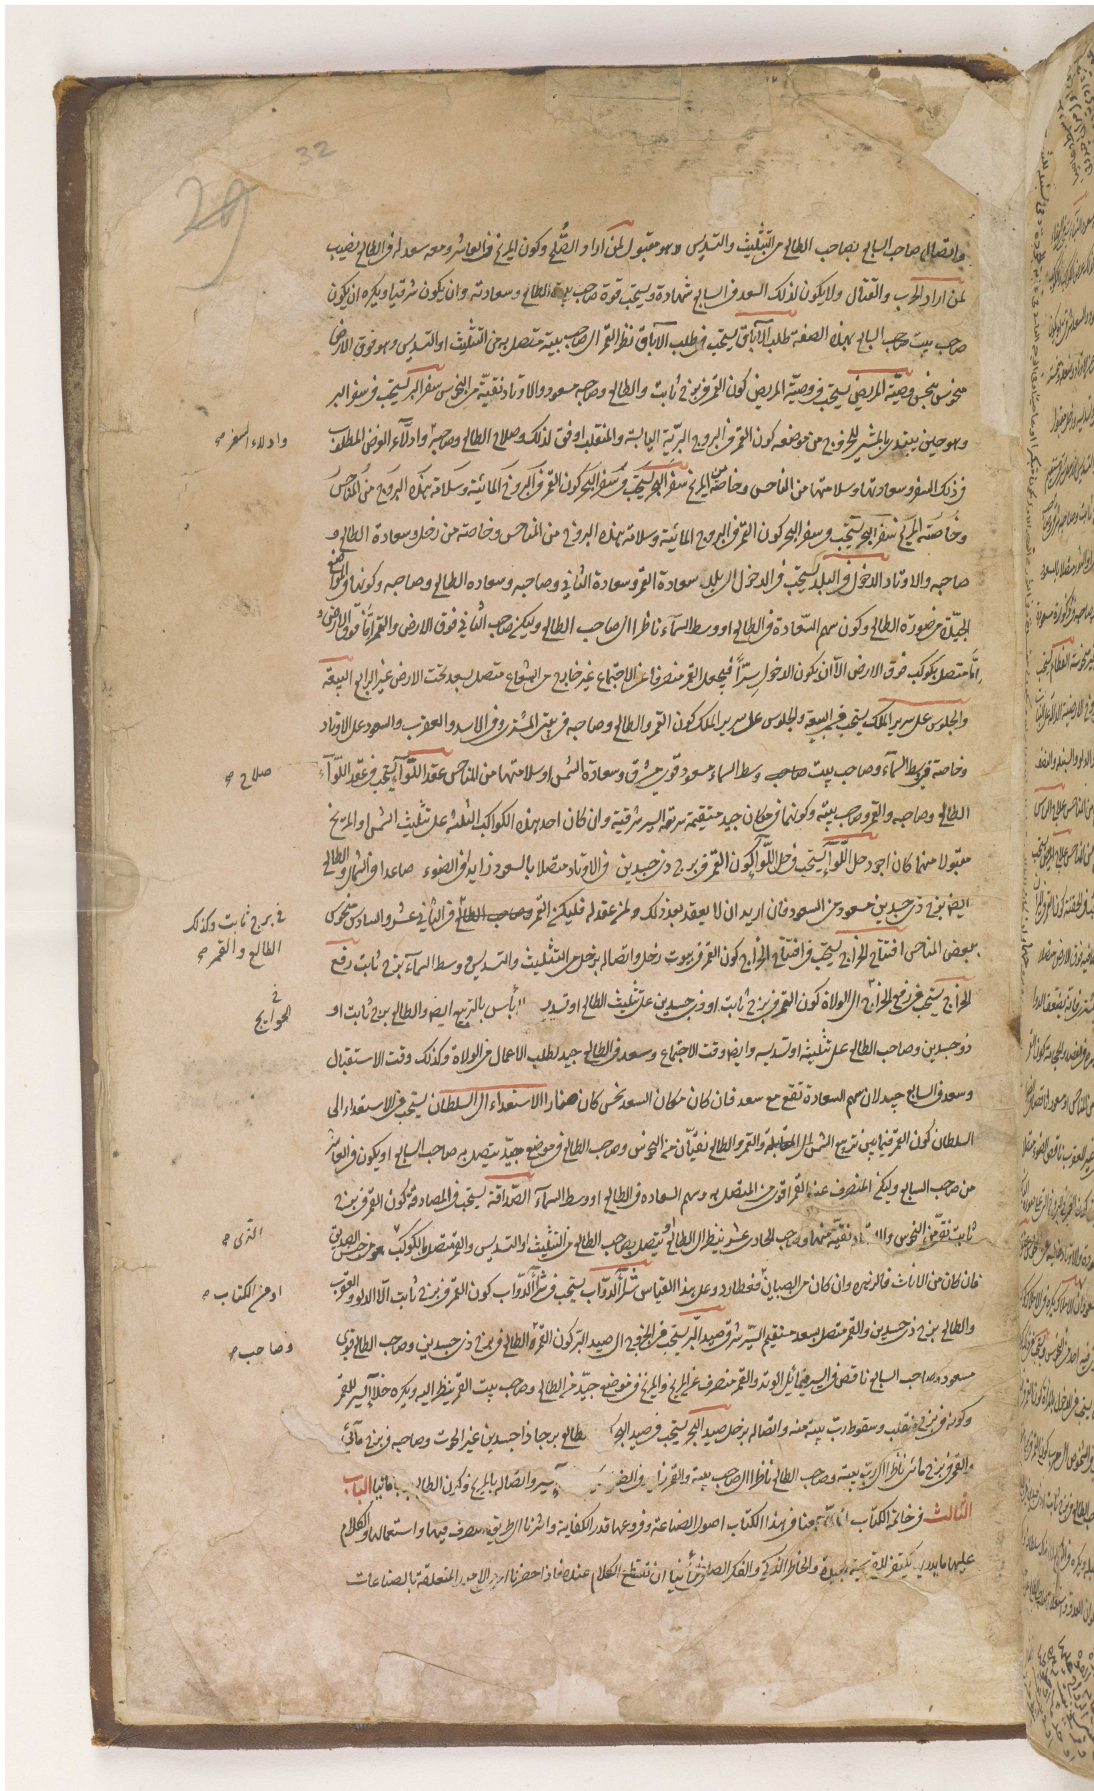 32
29
واتصال صاحب السابع بصاحب الطالع من التثليث والتسديس وهو مقبول لمن اراد الصلح وكون المريخ في العاشر ومعه سعد له في الطالع نصيب
لمن اراد الحرب والقتال ولا يكون لذلك السعد في السابع شهادة ويستحب قوة صاحب بيت الطالع وسعادته وان يكون شرقيا ويكره ان يكون
صاحب بيت صاحب السابع بهذه الصفة طلب الآباق يستحب في طلب الآباق نظر القمر الى صاحب بيته متصل به من التثليث او التسديس وهو فوق الارض
منحوس بنحس وصية المريض يستحب في وصية المريض كون القمر في برج ثابت والطالع وصاحبه مسعود والاوتاد نقية من النحوس سفر البر يستحب في سفر البر
وهو حين يبتدئ بالمسير للخروج من موضعه كون القمر في البروج البرية اليابسة والمنقلب اوفق لذلك وصلاح الطالع وصاحبه وادلاء الغرض المطلوب
وادلاء السفر صح
في ذلك السفر وسعادتها وسلامتها من المناحس وخاصة من المريخ سفر البحر يستحب في سفر البحر كون القمر في البروج المائية وسلامة بهذه البروج من المناحس
وخاصته المريخ سفر البحر يستحب في سفر البحر كون القمر في البروج المائية وسلامة بهذه البروج من المناحس وخاصته من زحل وسعادة الطالع و
صاحبه والاوتاد الدخول في البلد يستحب في الدخول الى بلد سعادة القمر وسعادة الثاني وصاحبه وسعادة الطالع وصاحبه وكونهما في المواضع
الجيدة من صورة الطالع وكون سهم السعادة في الطالع او وسط السماء ناظرا الى صاحب الطالع وليكن صاحب الثاني فوق الارض والقمر ايضا فوق الارض و
ايضا متصل بكوكب فوق الارض الا ان يكون الدخول سرا فيجعل القمر منصرفا عن الاجتماع غير خارج من الشعاع متصل بسعد تحت الارض غير الرابع البيعة
والجلوس على سرير الملك يستحب في البيعة والجلوس على سرير الملك كون القمر والطالع وصاحبه في بيتي المشتري وفي الاسد والعقرب والسعود على الاوتاد
وخاصة في وسط السماء وصاحب بيت وسط السماء مسعود قوي مشرق وسعادة الشمس او سلامتها من المناحس عقد اللواء يستحب في عقد اللواء
صلاح صح
الطالع وصاحبه والقمر وصاحب بيته وكونها في مكان جيد مستقيمة سريعة السير شرقية وان كان احد هذه الكواكب الثلثة على تثليث الشمس او المريخ
مقبولا منهما كان اجود حل اللواء يستحب في حل اللواء كون القمر في برج ذي جسدين في الاوتاد متصلا بالسعود زايدا في الضوء صاعدا في الشمال والطالع
ايضا برج ذي جسدين مسعود من السعود فان اريد ان لا يعقد بعد ذلك ولمن عقد له فليكن القمر وصاحب الطالع في الثاني عشر والسادس منحوس
في برج ثابت وكذلك
الطالع والقمر صح
ببعض المناحس افتتاح الخراج يستحب في افتتاح الخراج كون القمر في بيوت زحل واتصاله بزحل من التثليث والتسديس ووسط السماء برج ثابت رفع
الخراج يستحب في رفع الخراج الى الولاة كون القمر في برج ثابت او ذي جسدين على تثليث الطالع او تسديسه لا بأس بالتربيع ايضا والطالع برج ثابت او
في
الحوايج
ذو جسدين وصاحب الطالع على تثليثه او تسديسه وايضا وقت الاجتماع وسعد في الطالع جيد لطلب الاعمال من الولاة وكذلك وقت الاستقبال
وسعد في السابع جيد لان سهم السعادة تقع مع سعد فان كان مكان السعد نحس كان ضارا الاستعداء الى السلطان يستحب في الاستعداء الى
السلطان كون القمر فيما بين تربيع الشمس الى المقابلة والقمر والطالع نقيان من النحوس وصاحب الطالع في موضع جيد يتصل به صاحب السابع او يكون في العاشر
من صاحب السابع وليكن المنصرف عنه القمر اقوى من المتصل به وسهم السعادة في الطالع او وسط السماء الصداقة يستحب في المصادقة كون القمر في برج
ثابت نقي من النحوس والاوتاد نقية منها وصاحب الحادي عشر ينظر الى الطالع او يتصل بصاحب الطالع من التثليث او التسديس والقمر متصل بالكوكب من جنس الصديق
الذي صح
فان كان من الاناث فالزهرة وان كان من الصبيان فعطارد وعلى هذا القياس شرآء الدواب يستحب في شرآء الدواب كون القمر في برج ثابت الا الدلو والعقرب
او من الكتاب صح
والطالع برج ذي جسدين والقمر متصل بسعد مستقيم السير شرقي صيد البر يستحب في الخروج الى الصيد البر كون القمر والطالع في برج ذي جسدين وصاحب الطالع قوي
وصاحب صح
مسعود وصاحب السابع ناقص في السير زائل الوتد والقمر منصرف عن المريخ والمريخ في موضع جيد من الطالع وصاحب بيت القمر ينظر اليه ويكره خلاء السير للقمر
وكونه في برج منقلب وسقوط رب بيته عنه واتصاله بزحل صيد البحر يستحب في صيد البحر طالع برجا ذا جسدين غير الحوت وصاحبه في برج مائي
والقمر في برج مائي ناظرا الى رب بيته وصاحب الطالع ناظرا الى صاحب بيته والقمر زايد في الضوء السير واتصاله بالمريخ وكون الطالع مائيا الباب
الثالث في خاتمة الكتاب قد جمعنا في هذا الكتاب اصول الصناعة وفروعها قدر الكفاية واشرنا الى طريق التصرف فيها واستعمالها والكلام
عليها ما يكتفى للقريحة الجيدة والخاطر الذكي والفكر الصادق ثانيا ان نقطع الكلام عنده فاذا حضرنا الامور المتعلقة بالصناعات